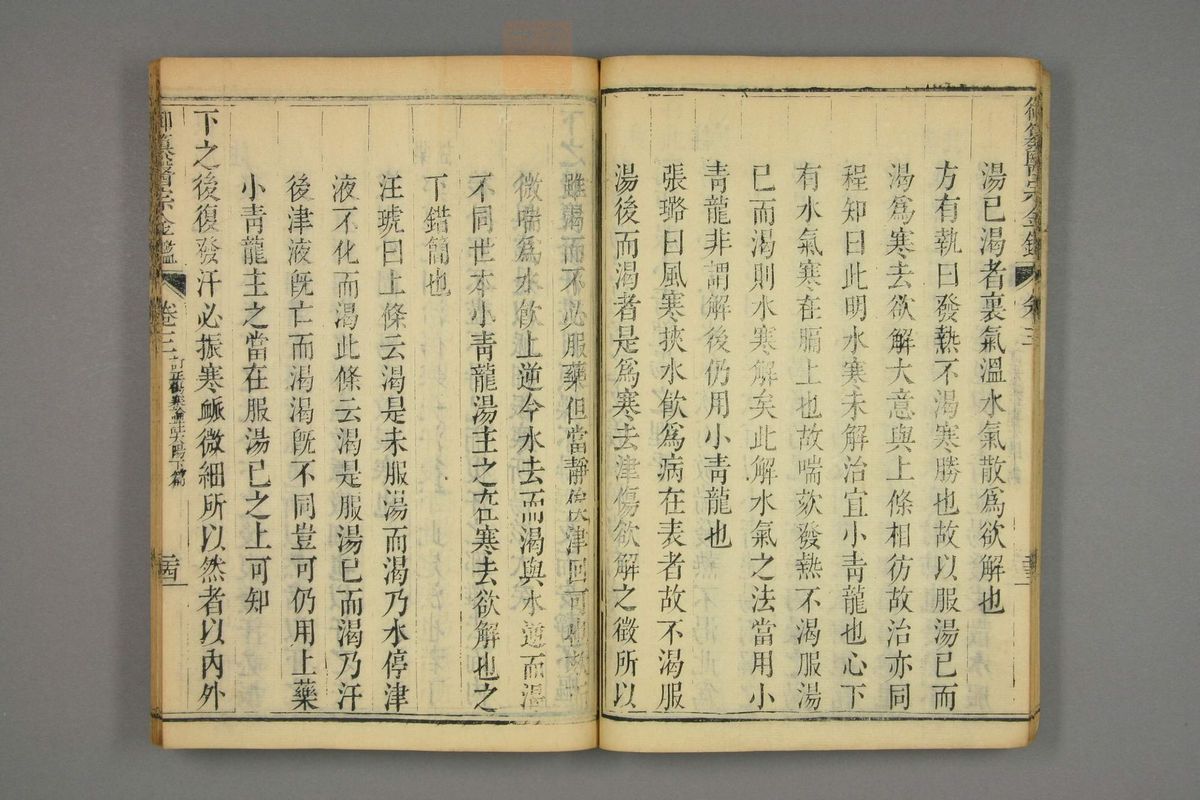 御纂醫宗金鑑
卷三
湯已渴者裏氣溫水氣散爲欲解也
方有執曰發熱不渴寒勝也故以服湯已而
渴爲寒去欲解大意與上條相彷故治亦同
程知曰此明水寒未解治宜小青龍也心下
有水氣寒在膈上也故喘欬發熱不渴服湯
已而渴則水寒解矣此解水氣之法當用小
青龍非謂解後仍用小青龍也
張璐曰風寒挾水飮爲病在表者故不渴服
湯後而渴者是爲寒去津傷欲解之徵所以
雖渴而不必服藥但當靜俟津回可也
微喘爲水飮上逆今水去而渴與水逆而渴
不同世本小青龍湯主之在寒去欲解也之
下錯簡也
汪琥曰上條云渴是未服湯而渴乃水停津
液不化而渴此條云渴是服湯已而渴乃汗
後津液旣亡而渴渴旣不同豈可仍用上藥
小青龍主之當在服湯已之上可知
下之後復發汗必振寒脈微細所以然者以內外
御纂醫宗金鑑
卷三
訂正傷寒論註太陽下篇
二十四